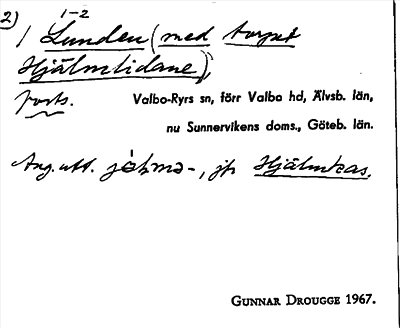 2)
1-2
/ Lunden (med torpet
Hjälmtidane),
forts.
Valbo-Ryrs sn, förr Valbo hd, Älvsb. län,
nu Sunnervikens doms., Göteb. län.
Ang. utt. , jfr Hjälmkas.
GUNNAR DROUGGE 1967.